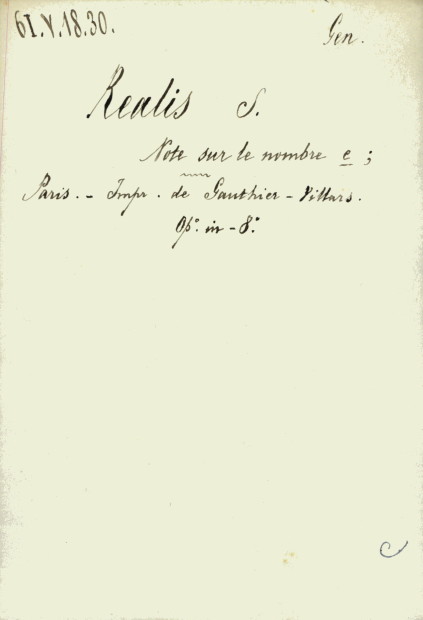 61.V.18.30.
Gen.
Realis S.
Note sur le nombre e ;
Paris. - Impr. de Gauthier-Villars.
Op.° in-8.°